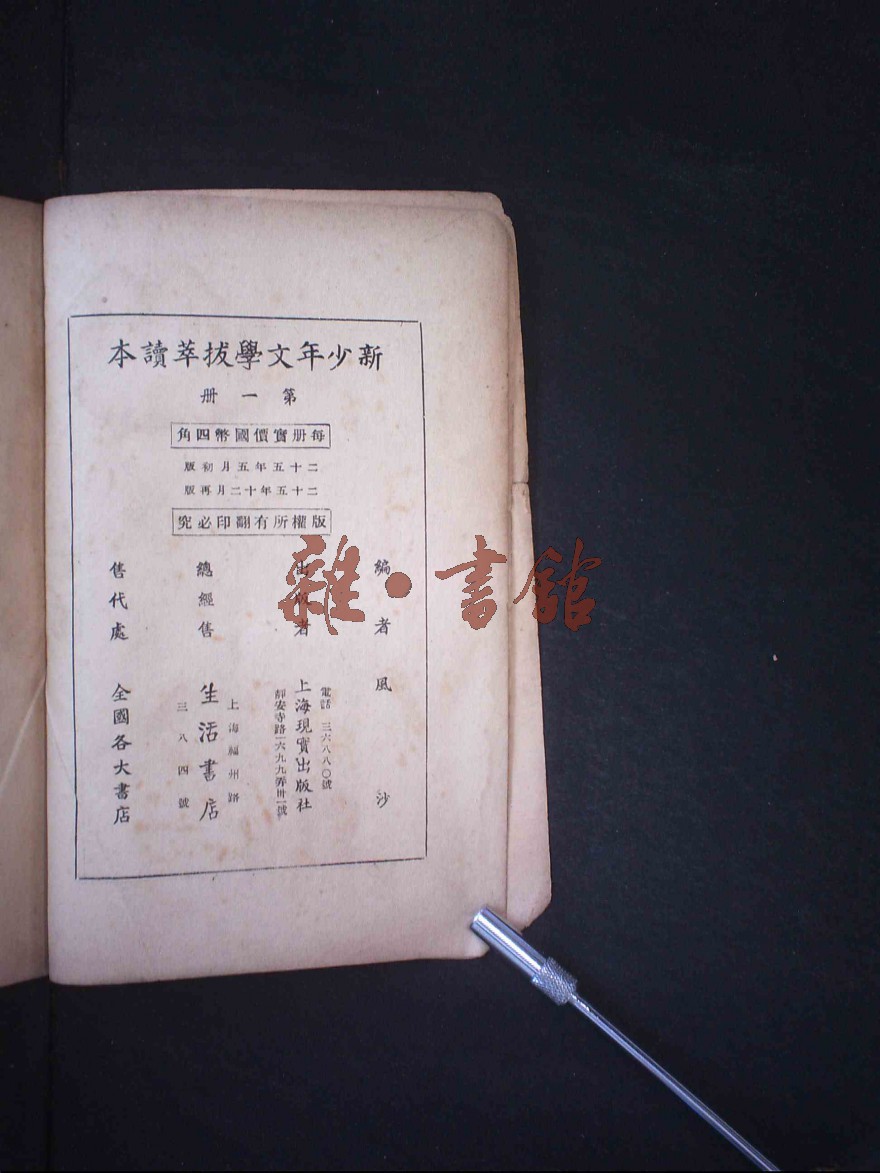 新少年文學拔萃讀本
第一册
每册實價國幣四角
二十五年五月初版
二十五年十二月再版
版權所有翻印必究
編者 風沙
出版者 上海現實出版社
電話 三六八八〇號
靜安寺路一六九九弄卅一號
總經售 生活書店
上海福州路
三八四號
售代處 全國各大書店
雜·書館